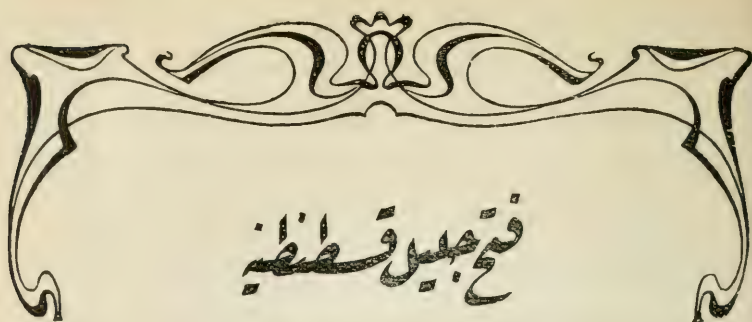 فتح جليل قسطنطنيه